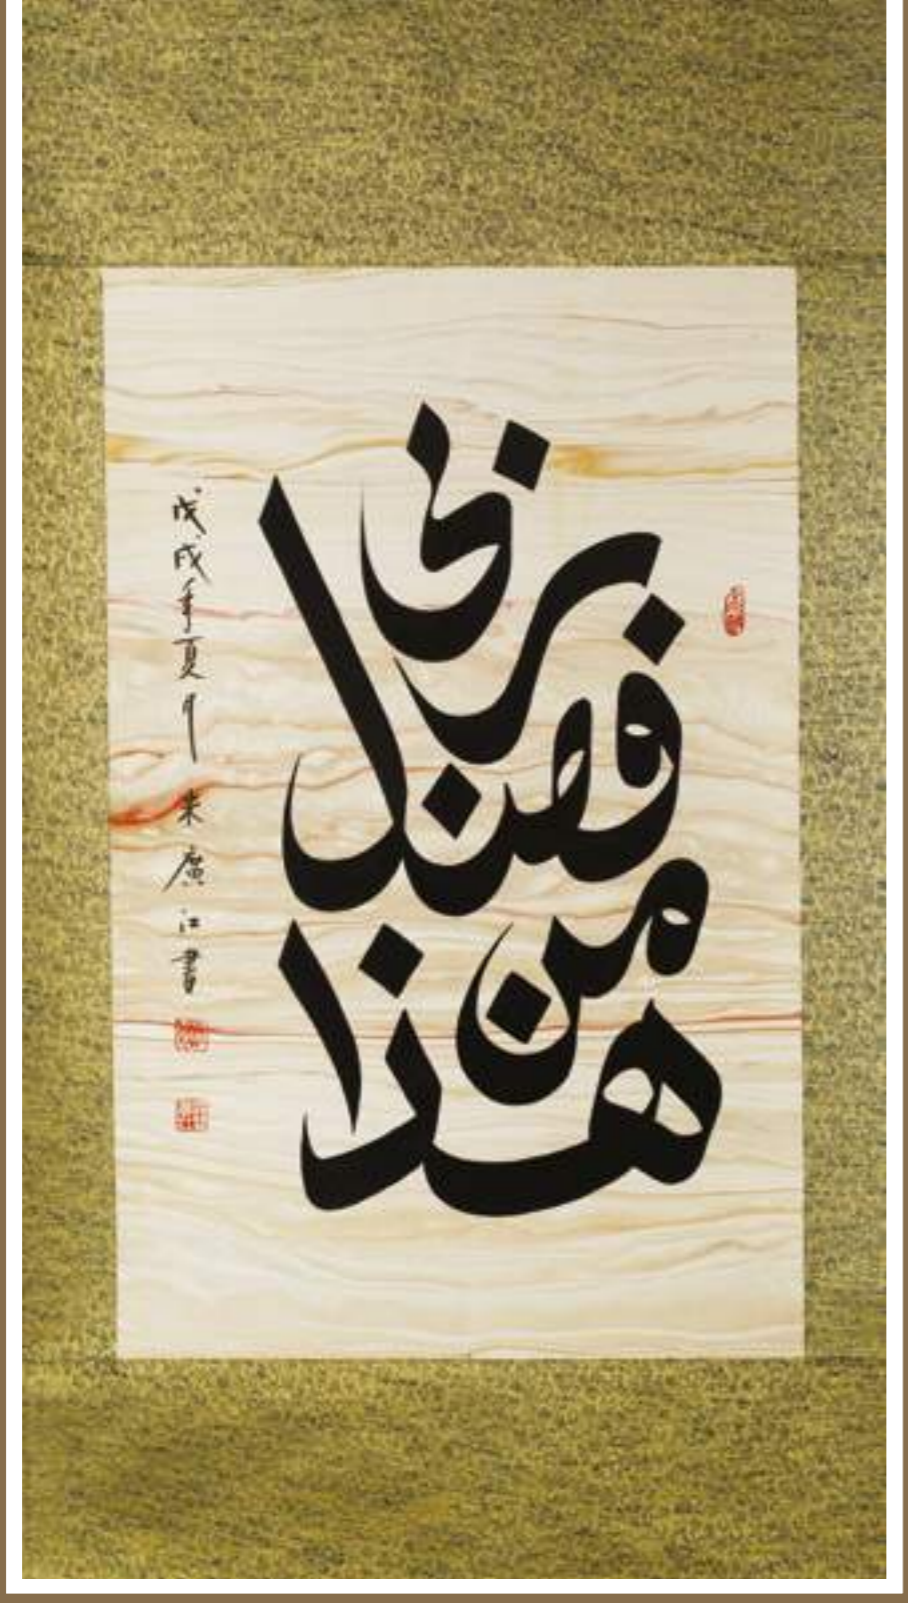 هذا من فضل ربي
戊戌年夏 米廣江書